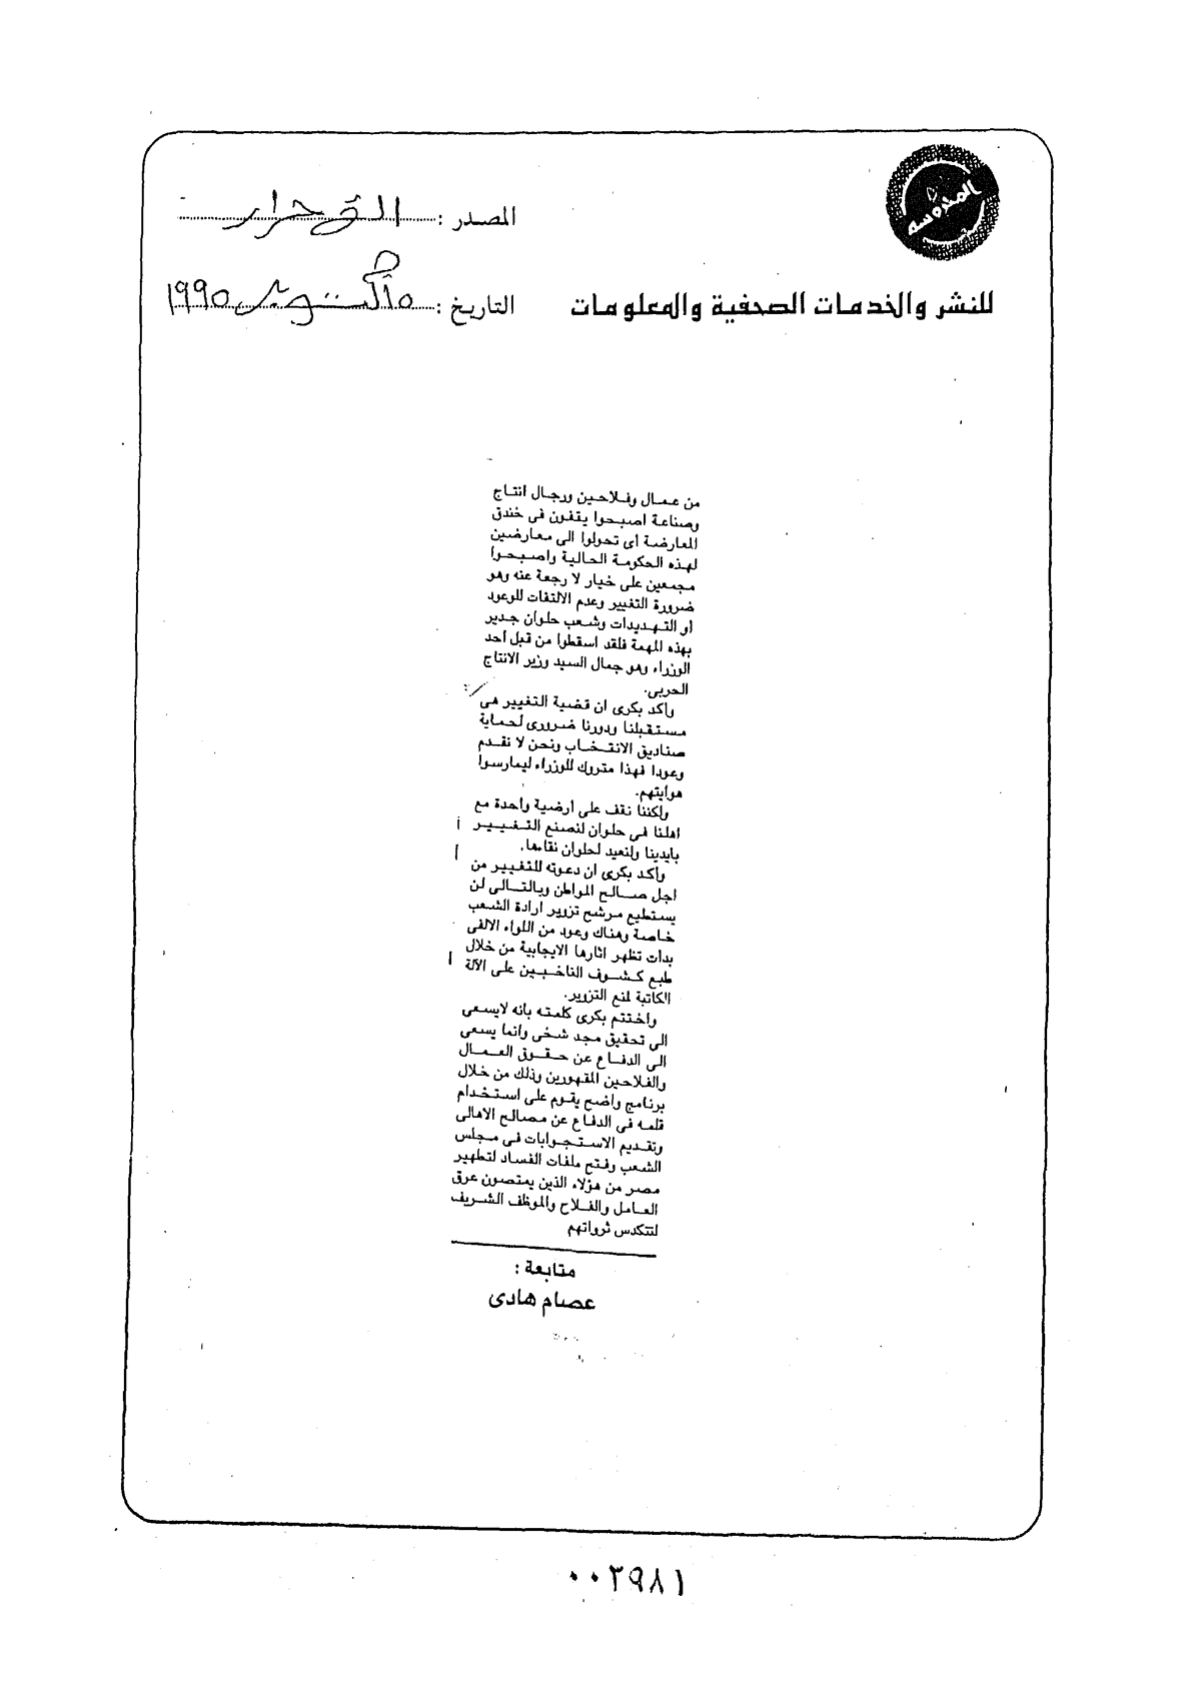 المحروسة
المصدر :
التاريخ : ٥ أكتوبر ١٩٩٥
للنشر والخدمات الصحفية والمعلومات
من عمال وفلاحين ورجال انتاج
وصناعة اصبحوا يقفون فى خندق
المعارضة اى تحولوا الى معارضين
لهذه الحكومة الحالية واصبحوا
مجمعين على خيار لا رجعة عنه وهو
ضرورة التغيير وعدم الالتفات للوعود
او التهديدات وشعب حلوان جدير
بهذه المهمة فلقد اسقطوا من قبل احد
الوزراء وهو جمال السيد وزير الانتاج
الحربى.
واكد بكرى ان قضية التغيير هى
مستقبلنا ودورنا ضرورى لحماية
صناديق الانتخاب ونحن لا نقدم
وعودا فهذا متروك للوزراء ليمارسوا
هوايتهم.
ولكننا نقف على ارضية واحدة مع
اهلنا فى حلوان لنصنع التغيير
بايدينا ولنعيد لحلوان نقاءها.
واكد بكرى ان دعوته للتغيير من
اجل صالح المواطن وبالتالى لن
يستطيع مرشح تزوير ارادة الشعب
خاصة وهناك وعود من اللواء الالفى
بدات تظهر اثارها الايجابية من خلال
طبع كشوف الناخبين على الآلة
الكاتبة لمنع التزوير.
واختتم بكرى كلمته بانه لايسعى
الى تحقيق مجد شخى وانما يسعى
الى الدفاع عن حقوق العمال
والفلاحين المقهورين وذلك من خلال
برنامج واضح يقوم على استخدام
قلمه فى الدفاع عن مصالح الاهالى
وتقديم الاستجوابات فى مجلس
الشعب وفتح ملفات الفساد لتطهير
مصر من هؤلاء الذين يمتصون عرق
العامل والفلاح والموظف الشريف
لتتكدس ثرواتهم
متابعة :
عصام هادى
٠٠٢٩٨١